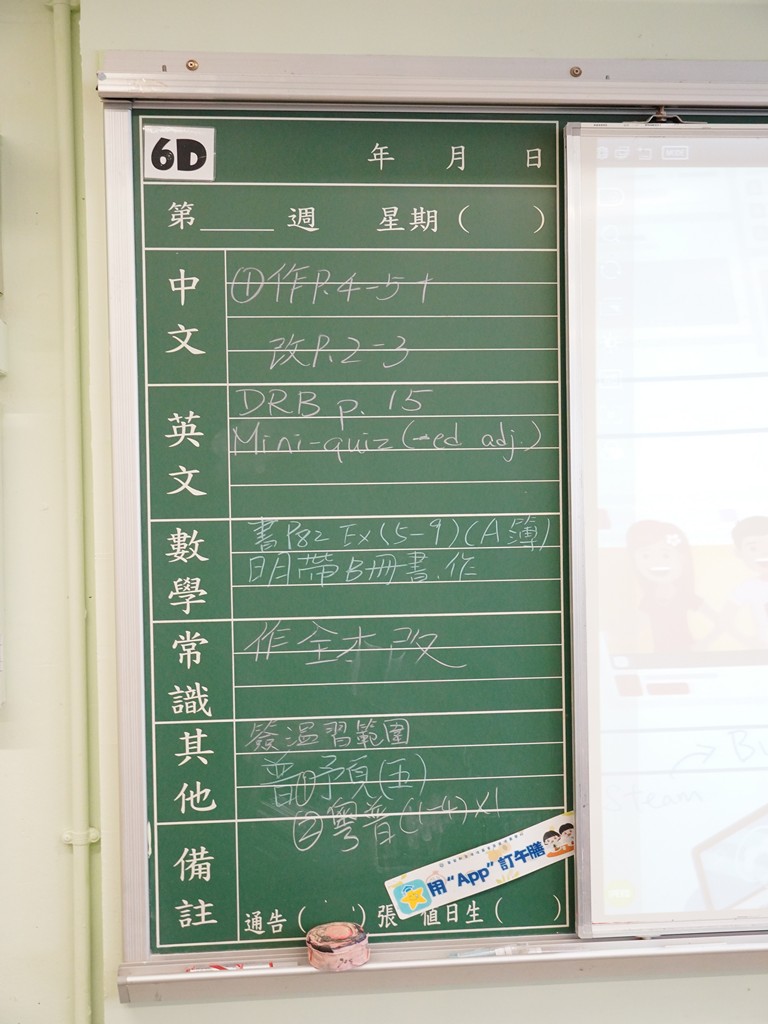 6D
年 月 日
第____週 星期( )
中文
①作P.4-5+
改P.2-3
英文
DRB p. 15
Mini-quiz (-ed adj.)
數學
書P82 Ex(5-9)(A簿)
明帶B冊書.作
常識
作全本改
其他
簽溫習範圍
普①預(五)
②粵普(1-4)X1
備註
用"App"訂午膳
通告( )張 值日生( )
Bu
Steam